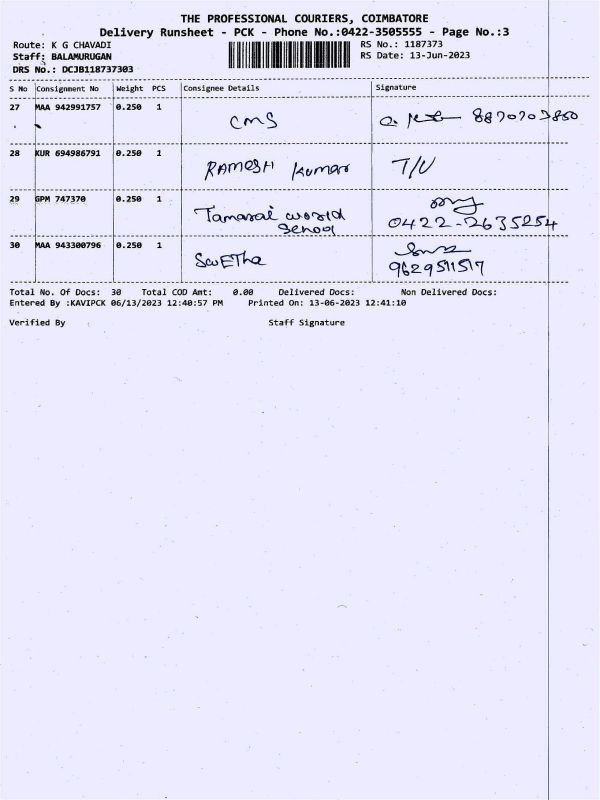 THE PROFESSIONAL COURIERS, COIMBATORE
Delivery Runsheet - PCK - Phone No.:0422-3505555 - Page No.:3
Route: K G CHAVADI RS No.: 1187373
Staff: BALAMURUGAN RS Date: 13-Jun-2023
DRS No.: DCJB118737303
S No Consignment No Weight PCS Consignee Details Signature
27 MAA 942991757 0.250 1 CMS 8870703860
28 KUR 694986791 0.250 1 RAMESH Kumar T/U
29 GPM 747370 0.250 1 Tamarai world
School 0422-2635254
30 MAA 943300796 0.250 1 SwETha
9629511517
Total No. Of Docs: 30 Total COD Amt: 0.00 Delivered Docs: Non Delivered Docs:
Entered By :KAVIPCK 06/13/2023 12:40:57 PM Printed On: 13-06-2023 12:41:10
Verified By Staff Signature